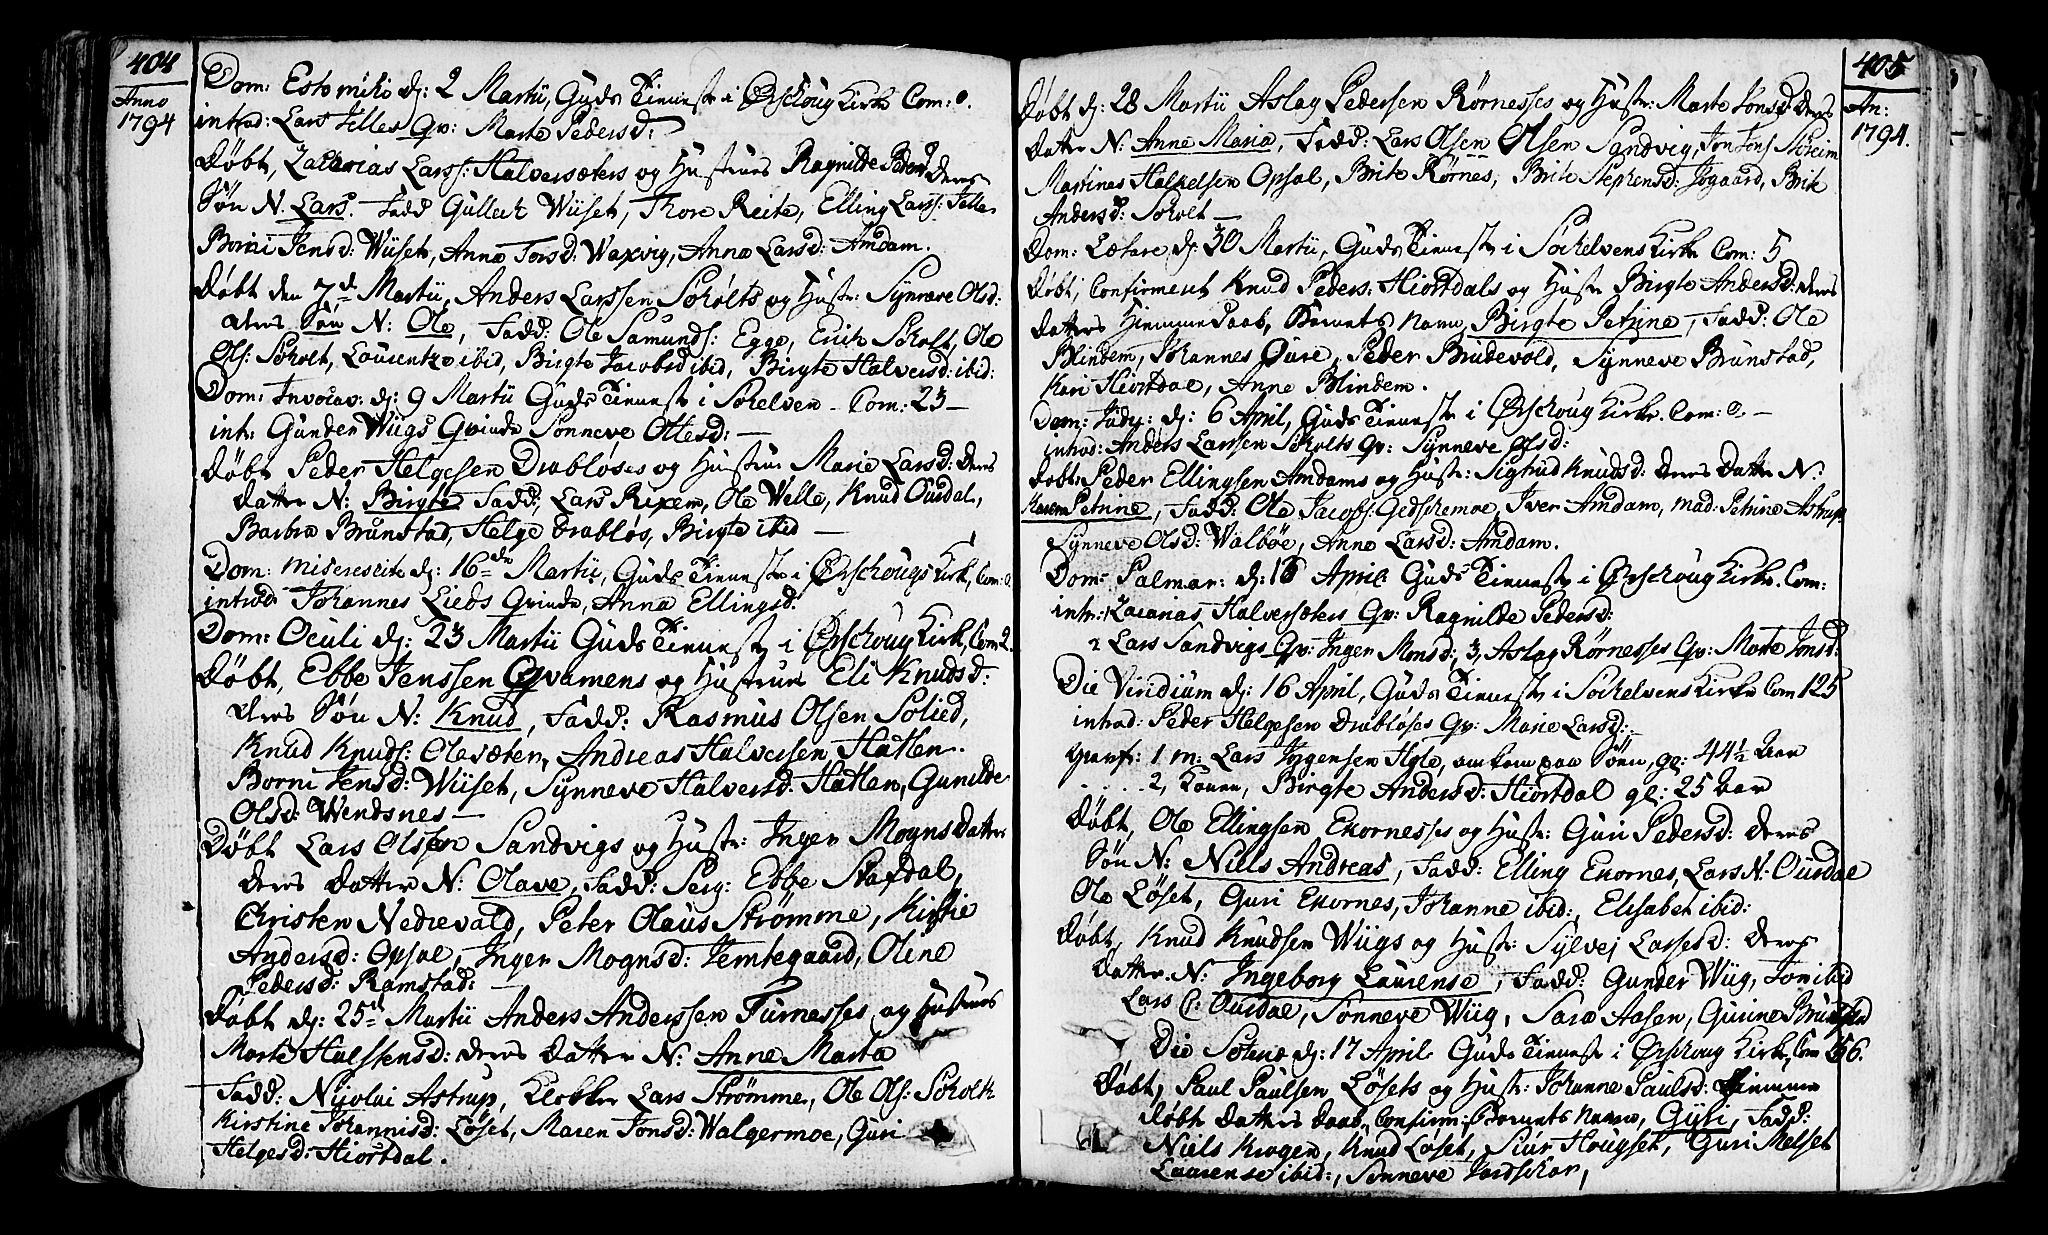 404
Anno
1794
Dom: Esto mihi dj: 2 Martii, Guds Tienneste i Ørschoug Kirke Com: 0.
introd: Lars Jelles Qv: Marte Pedersd:
Døbt, Zacharias Larss: Halversæters og Hustrues Ragnilde Pedersd deres
Søn N. Lars. Fadd Gullech Wiiset, Thore Reite, Elling Larss: Jelle
Borni Jensd: Wiiset, Anne Torsd: Waxvig, Anne Larsd: Amdam.
Døbt den 7de Martii, Anders Larssen Søholts og Hustr: Synneve Olsd:
deres Søn N: Ole, Fadd: Ole Samunds: Egge, Erich Søholt, Ole
Ols: Søholt, Laurentze ibid, Birgte Jacobsd ibid, Birgte Halversd: ibid:
Dom: Invocav: dj: 9 Martii Guds Tienneste i Søkelven - Com: 23 -
intr: Gunder Wiigs Qvinde Sønneve Ottesd: -
Døbt Peder Helgesen Drabløses og Hustrue Marie Larsd: deres
Datter N: Birgte Fadd: Lars Rixem, Ole Welle, Knud Ousdal,
Barbra Brunstad, Helge Drabløs, Birgte ibid -
Dom: Misericite dj: 16de Martii, Guds Tienneste i Ørschougs Kirk, Com: 0
introd: Johannes Lieds Qvinde, Anne Ellingsd:
Dom: Oculi dj: 23 Martii Guds Tienneste i Ørschoug Kirk, Com: 2.
Døbt, Ebbe Jenssen Qvamens og Hustrue Eli Knudsd:
deres Søn N: Knud, Fadd: Rasmus Olsen Solied,
Knud Knuds: Olesæter, Andreas Halversen Hatlen.
Borni Jensd: Wiiset, Synneve Halversd: Hatlen, Gunilde
Olsd: Wendsnes -
Døbt Lars Olssen Sandvigs og Hustr: Inger Mogns Datter
deres Datter N: Olave, Fadd: Serg: Ebbe Stafdal,
Christen Nedrevald, Peter Olaus Strømme, Kirstie
Andersd: Opsal, Inger Mognsd: Jemtegaard, Oline
Pedersd: Ramstad: -
Døbt dj: 25de Martii Anders Anderssen Furnesses og Hustrues
Marte Hulssensd: deres Datter N: Anne Marta
Fadd: Nicolai Astrup, Klokker Lars Strømme, Ole Ols: Søholt
Kirstine Johannisd: Løset, Maren Jonsd: Walgermoe, Guri
Helgesd: Hiortdal.
405
An:
1794.
Døbt dj: 28 Martii Aslag Pedersen Rørnesses og Hustr: Marte Jonsd deres
Datter N: Anne Maria, Fadd: Lars Olsen Olsen Sandvig, Jon Jons Solseim
Martines Halkelsen Opsal, Brite Rørnes, Brite Stephensd: Jogaard, Brite
Andersd: Søholt -
Dom: Lætare dj: 30 Martii, Guds Tienneste i Søchelvens Kirke Com: 5
Døbt, Confirmeret Knud Peders: Hiortdals og Hustr Birgte Andersd: deres
Datters Hiemme Daab, Barnets Navn Birgte Petrine, Fadd: Ole
Blindem, Johannes Gure, Peder Brudevold, Synneve Brunstad,
Kari Hiortdal, Anne Blindem.
Dom: Judic: dj: 6 April, Guds Tienneste i Ørschoug Kirke. Com: 0 -
introd: Anders Larssen Søholts Qv: Synneve Olsd:
Døbt: Peder Ellingsen Amdams og Hustr: Sigtrud Knudsd: deres Datter N:
Karen Petrine, Fadd: Ole Jacobs: Gedschemoe, Iver Amdam, Mad: Petrine Astrup
Synneve Olsd: Walbøe, Anne Larsd: Amdam.
Dom: Palmar: dj: 13 April Guds Tienneste i Ørschoug Kirke. Com:
intr: Zacarias Halversæters Qv: Ragnilde Pedersd:
2 Lars Sandvigs Qv: Inger Monsd: 3, Aslag Rørnesses Qv: Marte Jonsd:
Die Viridium dj: 16 April, Guds Tienneste i Søchelvens Kirke Com 125
introd: Peder Helgesen Drabløses Qv: Marie Larsd:
Graf: 1 m: Lars Jørgensen Hole, omkom paa Søen, gl: 44½ Aar
2, Konen, Birgte Andersd: Hiortdal gl: 25 Aar
Døbt, Ole Ellingsen Ekornesses og Hustr: Guri Pedersd: deres
Søn N: Niels Andreas, Fadd: Elling Ekornes, Lars N: Ousdal
Ole Løset, Guri Ekornes, Johanne ibid:, Elisabet ibid:
Døbt, Knud Knudsen Wiigs og Hustr: Sylvej Lassesd: deres
Datter N: Ingeborg Laurense, Fadd: Gunder Wiig, Jon ibid
Lars C: Ousdal, Sønneve Wiig, Sara Aasen, Gurine Brunstad
Die Solenne dj: 17 April Guds Tienneste i Ørschoug Kirk, Com 156.
Døbt, Paul Paulsen Løsets og Hustr: Johanne Paulsd: Hiemme
døbt Datters Daab, Confirm: Barnets Navn, Gyri, Fadd:
Niels Krogen, Knud Løset, Siur Hougset, Guri Melset
Laurense ibid:, Sønneve Jordschar,